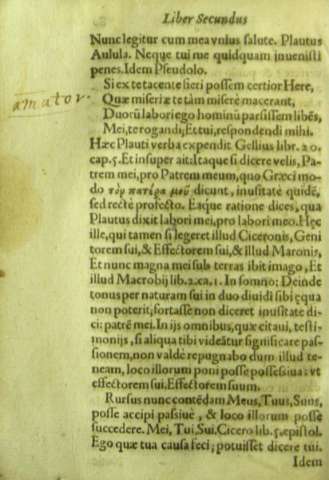 Liber Secundus
Nunc legitur cum mea vnius salute. Plautus
Aulula. Neque tui me quidquam inuenisti
penes. Idem Pseudolo.
Si ex te tacente fieri possem certior Here,
amator.
Quæ miseriæ te tàm miserè macerant,
Duorũ labori ego hominũ parsissem libẽs,
Mei, te rogandi, Et tui, respondendi mihi.
Hæc Plauti verba expendit Gellius libr. 20.
cap. 5. Et insuper ait. Itaque si dicere velis, Pa-
trem mei, pro Patrem meum, quo Græci mo-
do τὸν πατέρα μοῦ dicunt, inusitatè quidẽ,
sed rectè profecto. Eaque ratione dices, qua
Plautus dixit labori mei, pro labori meo. Hęc
ille, qui tamen si legeret illud Ciceronis, Geni
torem sui, & Effectorem sui, & Illud Maronis,
Et nunc magna mei sub terras ibit imago, Et
illud Macrobij lib. 2. ca. 1. In somno; Deinde
tonus per naturam sui in duo diuidi sibi ęqua
non poterit; fortasse non diceret inusitatè di-
ci: patrẽ mei. In ijs omnibus, quæ citaui, testi-
monijs, si aliqua tibi videãtur significare pas-
sionem, non valdè repugnabo dum illud te-
neam, loco illorum poni posse possessiua: vt
effectorem sui. Effectorem suum.
Rursus nunc contẽdam Meus, Tuus, Suus,
posse accipi passiuè, & loco illorum posse
succedere. Mei, Tui, Sui. Cicero lib. 5. epistol.
Ego quæ tua causa feci; potuisset dicere tui.
Idem